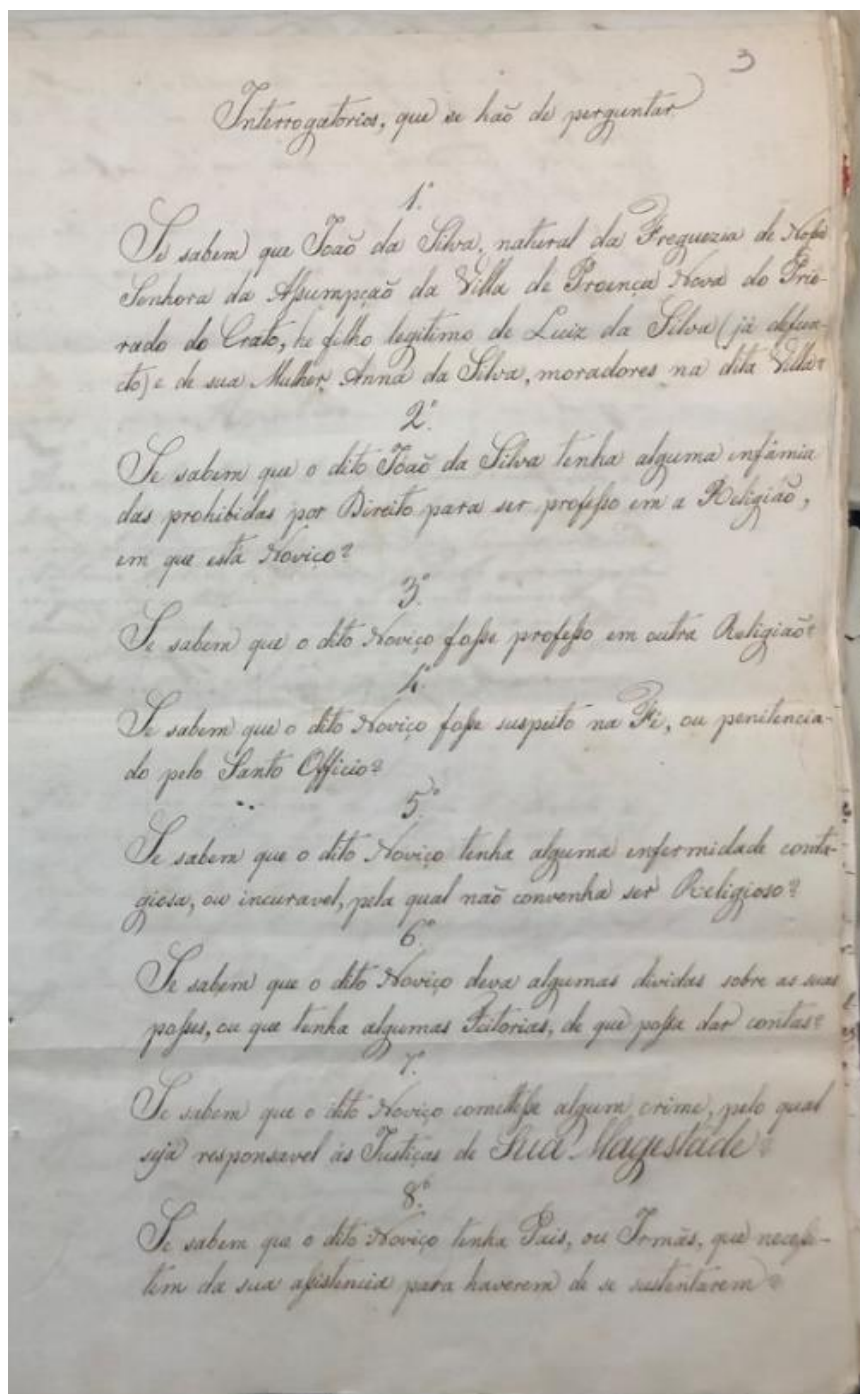 3
Interrogatorios, que se haõ de perguntar
1.º
Se sabem que Joaõ da Silva, natural da Freguezia de Noſsa
Senhora da Aſsumpçaõ da Villa de Proença Nova do Prio-
rado do Crato, he filho legitimo de Luiz da Silva (já defun-
cto) e de sua Mulher Anna da Silva, moradores na dita Villa?
2.º
Se sabem que o dito Joaõ da Silva tenha alguma infâmia
das prohibidas por Direito para ser profeſso em a Religião,
em que está Noviço?
3.º
Se sabem que o dito Noviço foſse profeſso em outra Religiaõ?
4.º
Se sabem que o dito Noviço foſse suspeito na Fé, ou penitencia-
do pelo Santo Officio?
5.º
Se sabem que o dito Noviço tenha alguma enfermidade conta-
giosa, ou incuravel, pela qual naõ convenha ser Religioso?
6.º
Se sabem que o dito Noviço deva algumas dividas sobre as suas
poſses, ou que tenha algumas Feitorias, de que poſsa dar contas?
7.º
Se sabem que o dito Noviço cometteſse algum crime, pelo qual
seja responsavel ás Justiças de Sua Magestade?
8.º
Se sabem que o dito Noviço tenha Pais, ou Irmãs, que neceſsi-
tem da sua aſsistencia para haverem de se sustentarem?